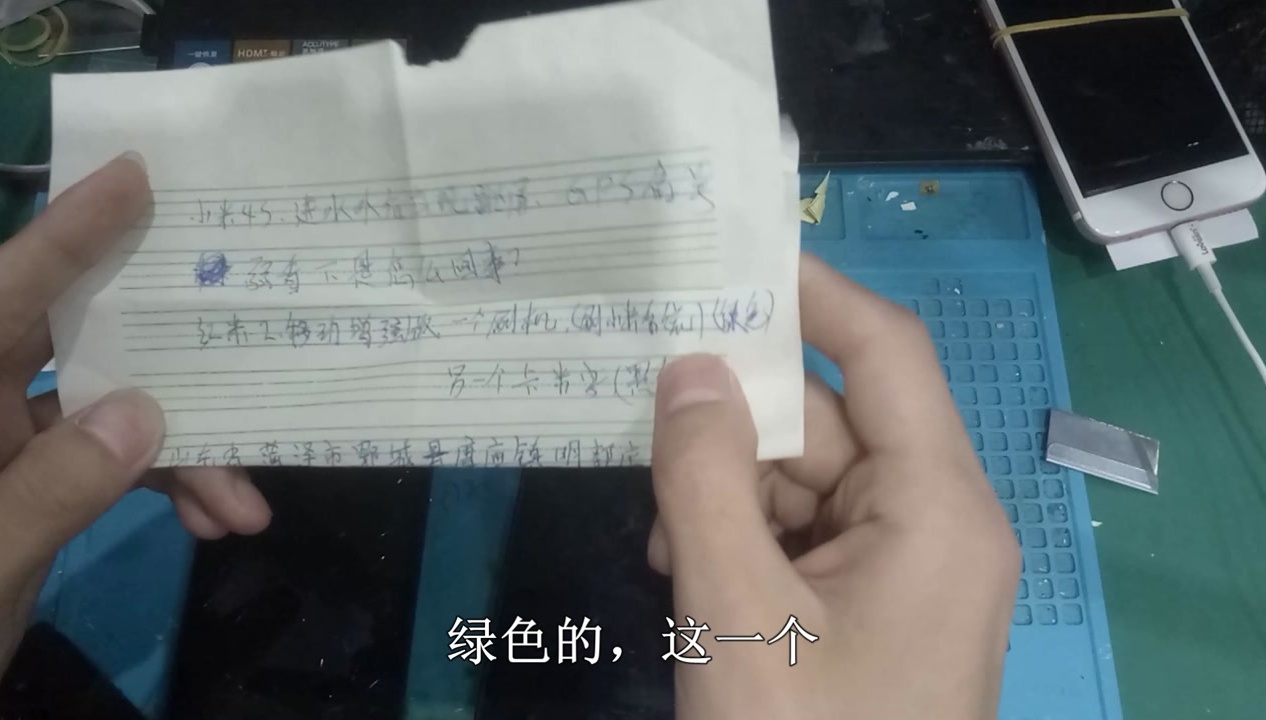 一键恢复
HDMI
小米4S,进水水 GPS
弱有下是怎么回事?
红米2移动增强版 一个刷机,(刷小米系统)(绿色)
另一个卡米字(黑
山东省菏泽市鄄城县 明都
绿色的,这一个